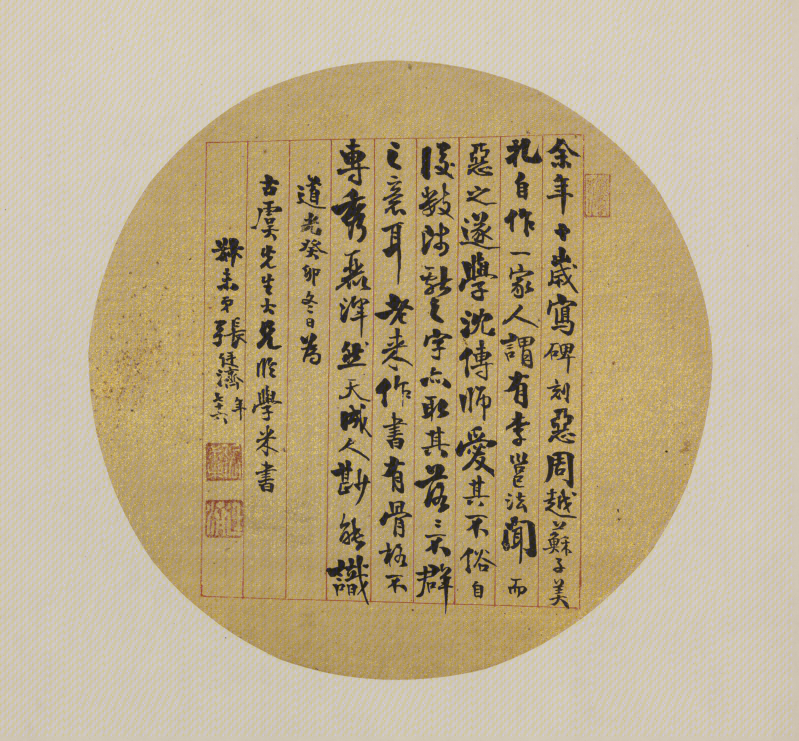 余年十歲寫碑刻惡周越蘇子美
札自作一家人謂有李邕法聞而
惡之遂學沈傳師愛其不俗自
後數改獻之字亦取其落落不群
之意耳老來作書有骨格不
專秀磊渾然天成人尠能識
道光癸卯冬日為
古虞先生大兄臨學米書
叔未弟張廷濟年七十六